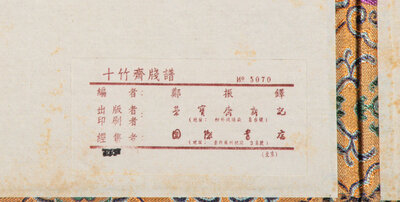 十竹齋牋譜 № 5070
編者： 鄭振鐸
出版者：
印刷者： 榮寶齋新記
經售者： 國際書店
(北京)